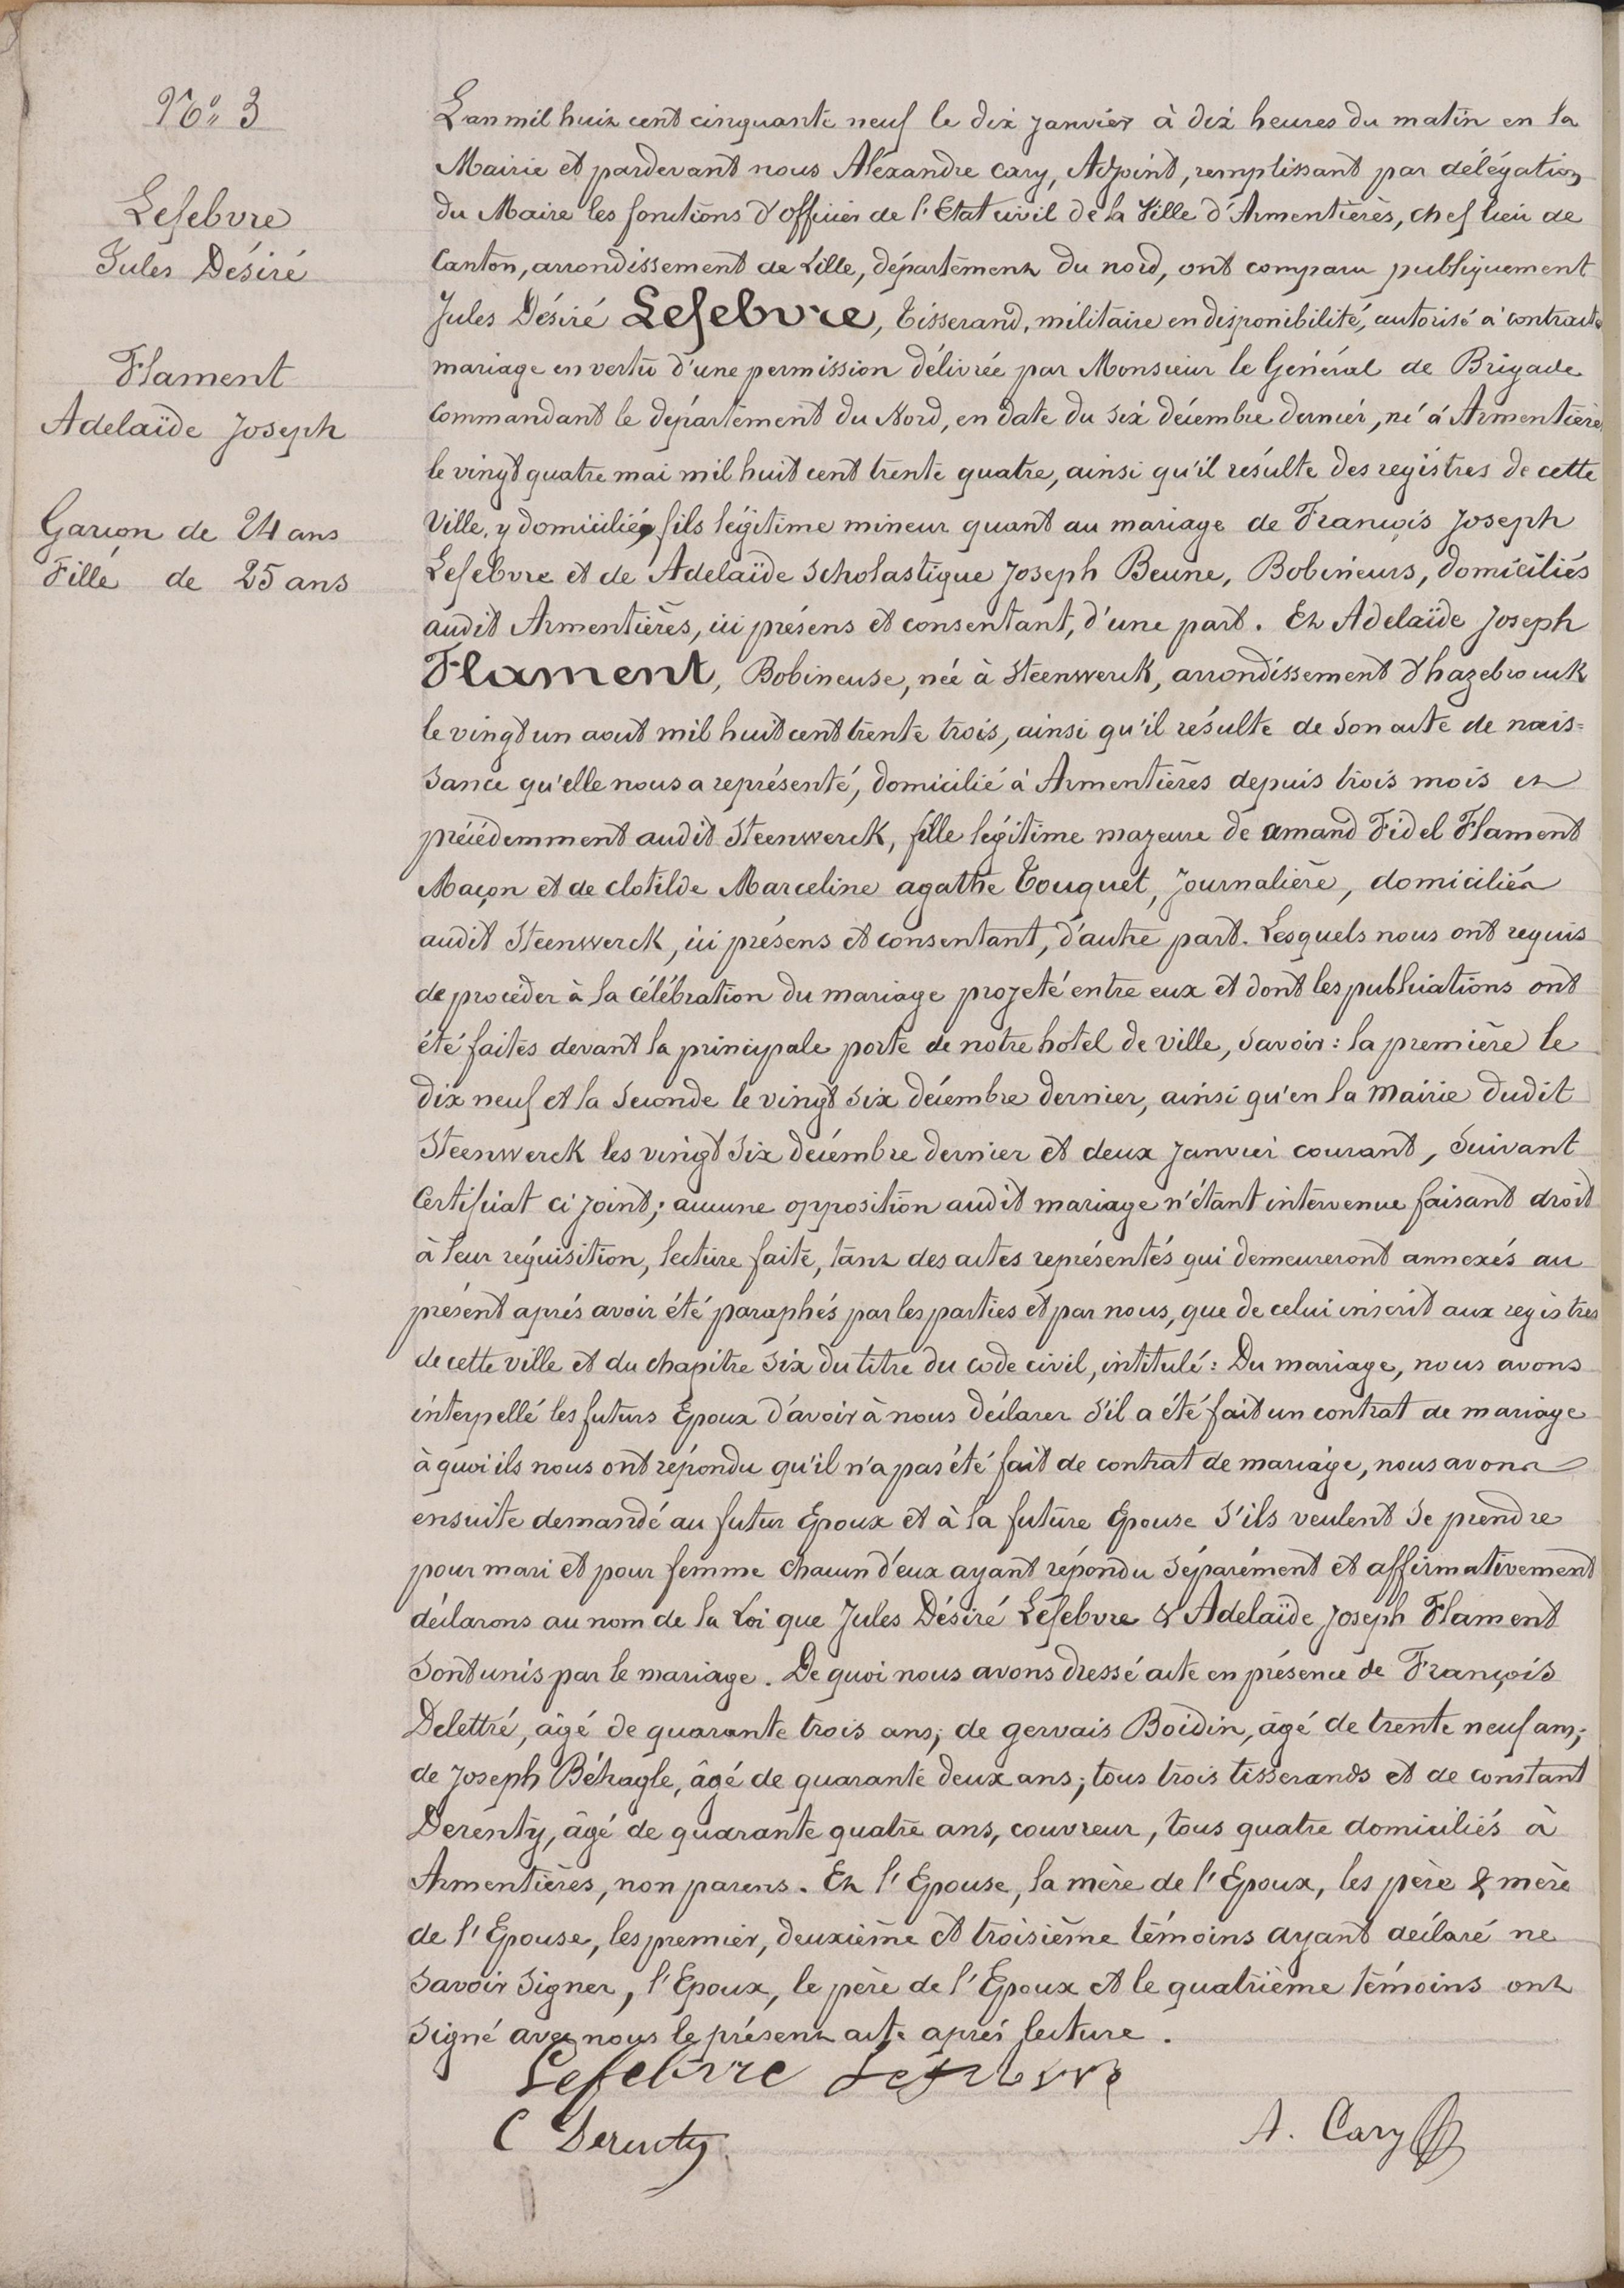 N° 3
Lefebvre
Jules Désiré
Flament
Adelaïde Joseph
Garçon de 24 ans
Fille de 25 ans
L'an mil huit cent cinquante neuf le dix Janvier à dix heures du matin en la
Mairie et pardevant nous Aléxandre Cary, Adjoint, remplissant par délégation
du Maire les fonctions d'officier de l'Etat civil de la Ville d'Armentières, chef lieu de
Canton, arrondissement de Lille, département du nord, ont comparu publiquement
Jules Désiré Lefebvre, Tisserand, militaire en disponibilité, autorisé à contracter
mariage en vertu d'une permission délivrée par Monsieur le Général de Brigade
Commandant le département du Nord, en date du Six décembre dernier, né à Armentières
le vingt quatre mai mil huit cent trente quatre, ainsi qu'il résulte des registres de cette
Ville, y domicilié, fils légitime mineur quant au mariage de François Joseph
Lefebvre et de Adelaïde Scholastique Joseph Beune, Bobineurs, domiciliés
audit Armentières, ici présens et consentant, d'une part. Et Adelaïde Joseph
Flament, Bobineuse, née à Steenwerck, arrondissement d'hazebrouck
le vingt un aout mil huit cent trente trois, ainsi qu'il résulte de Son acte de nais=
Sance qu'elle nous a représenté, domicilié à Armentières depuis trois mois et
précédemment audit Steenwerck, fille légitime majeure de amand Fidel Flament
Maçon et de clotilde Marceline agathe Touquet, Journalière, domiciliés
audit Steenwerck, ici présens et consentant, d'autre part. Lesquels nous ont requis
de procéder à la célébration du mariage projeté entre eux et dont les publications ont
été faites devant la principale porte de notre hotel de ville, Savoir : la première le
dix neuf et la Seconde le vingt Six décembre dernier, ainsi qu'en la Mairie dudit
Steenwerck les vingt Six décembre dernier et deux Janvier courant, Suivant
Certificat ci joint; aucune opposition audit mariage n'étant intervenue faisant droit
à leur réquisition, lecture faite, tant des actes représentés qui demeureront annexés au
présent aprés avoir été paraphés par les parties et par nous, que de celui inscrit aux registres
de cette ville et du chapitre Six du titre du code civil, intitulé : Du mariage, nous avons
interpellé les futurs Epoux d'avoir à nous déclarer S'il a été fait un contrat de mariage
à quoi ils nous ont répondu qu'il n'a pas été fait de contrat de mariage, nous avons
ensuite demandé au futur Epoux et à la future Epouse S'ils veulent Se prendre
pour mari et pour femme chacun d'eux ayant répondu Séparément et affirmativement
déclarons au nom de la Loi que Jules Désiré Lefebvre & Adelaïde Joseph Flament
Sont unis par le mariage. De quoi nous avons dressé acte en présence de François
Delettré, âgé de quarante trois ans; de gervais Boidin, âgé de trente neuf ans;
de Joseph Béhagle, âgé de quarante deux ans; tous trois tisserands et de constant
Derenty, âgé de quarante quatre ans, couvreur, tous quatre domiciliés à
Armentières, non parens. Et l'Epouse, la mère de l'Epoux, les père & mère
de l'Epouse, les premier, deuxième et troisième témoins ayant déclaré ne
Savoir Signer, l'Epoux, le père de l'Epoux et le quatrième témoins ont
Signé avec nous le présent acte aprés lecture.
Lefebvre Lefebvre
C Derenty
A. Cary